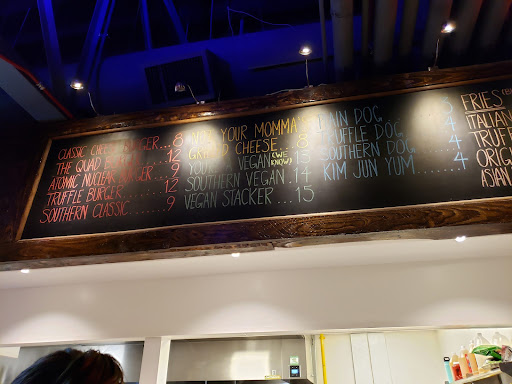 CLASSIC CHEESEBURGER....8
THE QUAD 12
ATOMIC NUCLEAR 9
TRUFFLE BURGER........12
SOUTHERN CLASSIC......9
YOUR MOMMA'S
CHEESE...8
VEGAN (WE KNOW) 13
SOUTHERN VEGAN.14
VEGAN STACKER ....15
DOG 3
TRUFFLE DOG 4
SOUTHERN DOG 4
KIM JUN YUM........4
FRIES
ITALIAN
TRUFF
ORIG
ASIAN